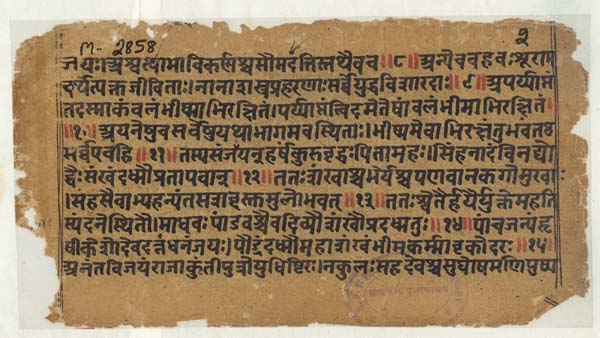 M-2858
2
जयः।अश्वत्थामाविकर्णश्चसौमदत्तिस्तथैवच॥८॥अन्येचबहवःशूराम
दर्थेत्यक्तजीविताः।नानाशस्त्रप्रहरणाःसर्वेयुद्धविशारदाः॥९॥अपर्य्याप्तं
तदस्माकंबलंभीष्माभिरक्षितं।पर्य्याप्तंत्विदमेतेषांबलंभीमाभिरक्षितं।
॥१०॥अयनेषुचसर्वेषुयथाभागमवस्थिताः।भीष्ममेवाभिरक्षंतुभवंतः
सर्वएवहि॥११॥तस्यसंजयन्हर्षंकुरुवृद्धःपितामहः।सिंहनादंविनद्यो
च्चैःसंखंदध्मौप्रतापवान्॥१२॥ततःशंखाश्चभेर्यश्चपणवानकगोमुखाः
।सहसैवाभ्यहन्यंतसशब्दस्तुमुलोभवत्॥१३॥ततःश्वेतैर्हयैर्युक्तेमहति
स्यंदनेस्थितौ।माधवःपांडवश्चैवदिव्यौशंखौप्रदध्मतुः॥१४॥पांचजन्यंहृ
षीकेशोदेवदत्तंधनंजयः।पौंड्रंदध्मौमहाशंखंभीमकर्म्मावृकोदरः॥१५॥
अनंतविजयंराजाकुंतीपुत्रोयुधिष्ठिरः।नकुलःसहदेवश्चसुघोषमणिपुष्प